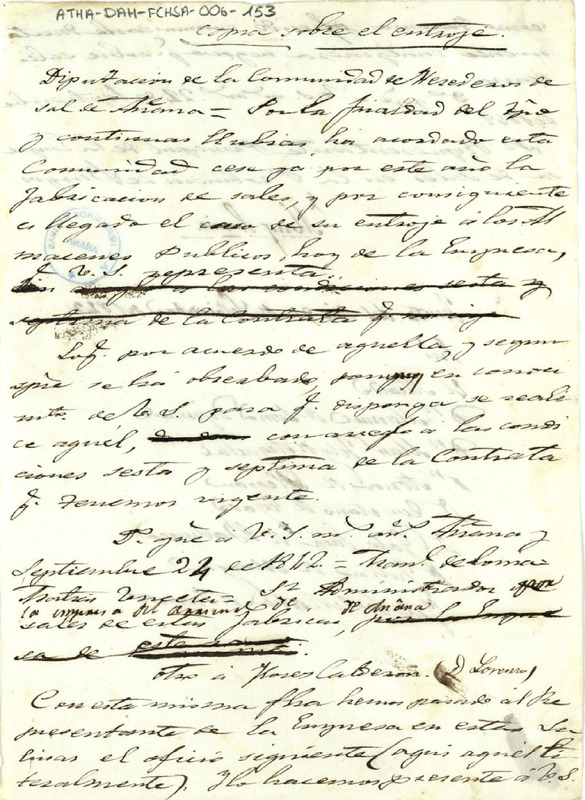 ATHA-DAH-FCHSA-006-153
Copia sobre el entroje.
Diputacion de la Comunidad de Herederos de
sal de Añana = Por la frialdad del tpo
y continuas llubias, ha acordado esta
Comunidad cese ya por este año la
fabricacion de sales, y por consiguiente
es llegado el caso de su entroje á los Al
macenes publicos, hoy de la Empresa,
q. V. S. representa.
las condiciones sesta y
septima de la Contrata q.
Lo q. por acuerdo de aquella, y segun
spre se há obserbado, en conoci
mto. de V. S. para q. disponga se reali
ce aquél, con arreglo á las condi
ciones sesta y septima de la Contrata
q. tenemos vigente.
D. gûe á V. S. ms. as. Añana y
Septiembre 24 de 1842 = Man. de
Sr. Administrador por
la empresa de
sales de estas fabricas, por la Empre
sa de
otro á Flores Calderon. (D. Lorenzo)
Con esta misma fha hemos pasado al Re
presentante de la Empresa en estas Sa
linas el oficio siguiente (aqui aquél li
teralmente). Y lo hacemos presente á V. S.